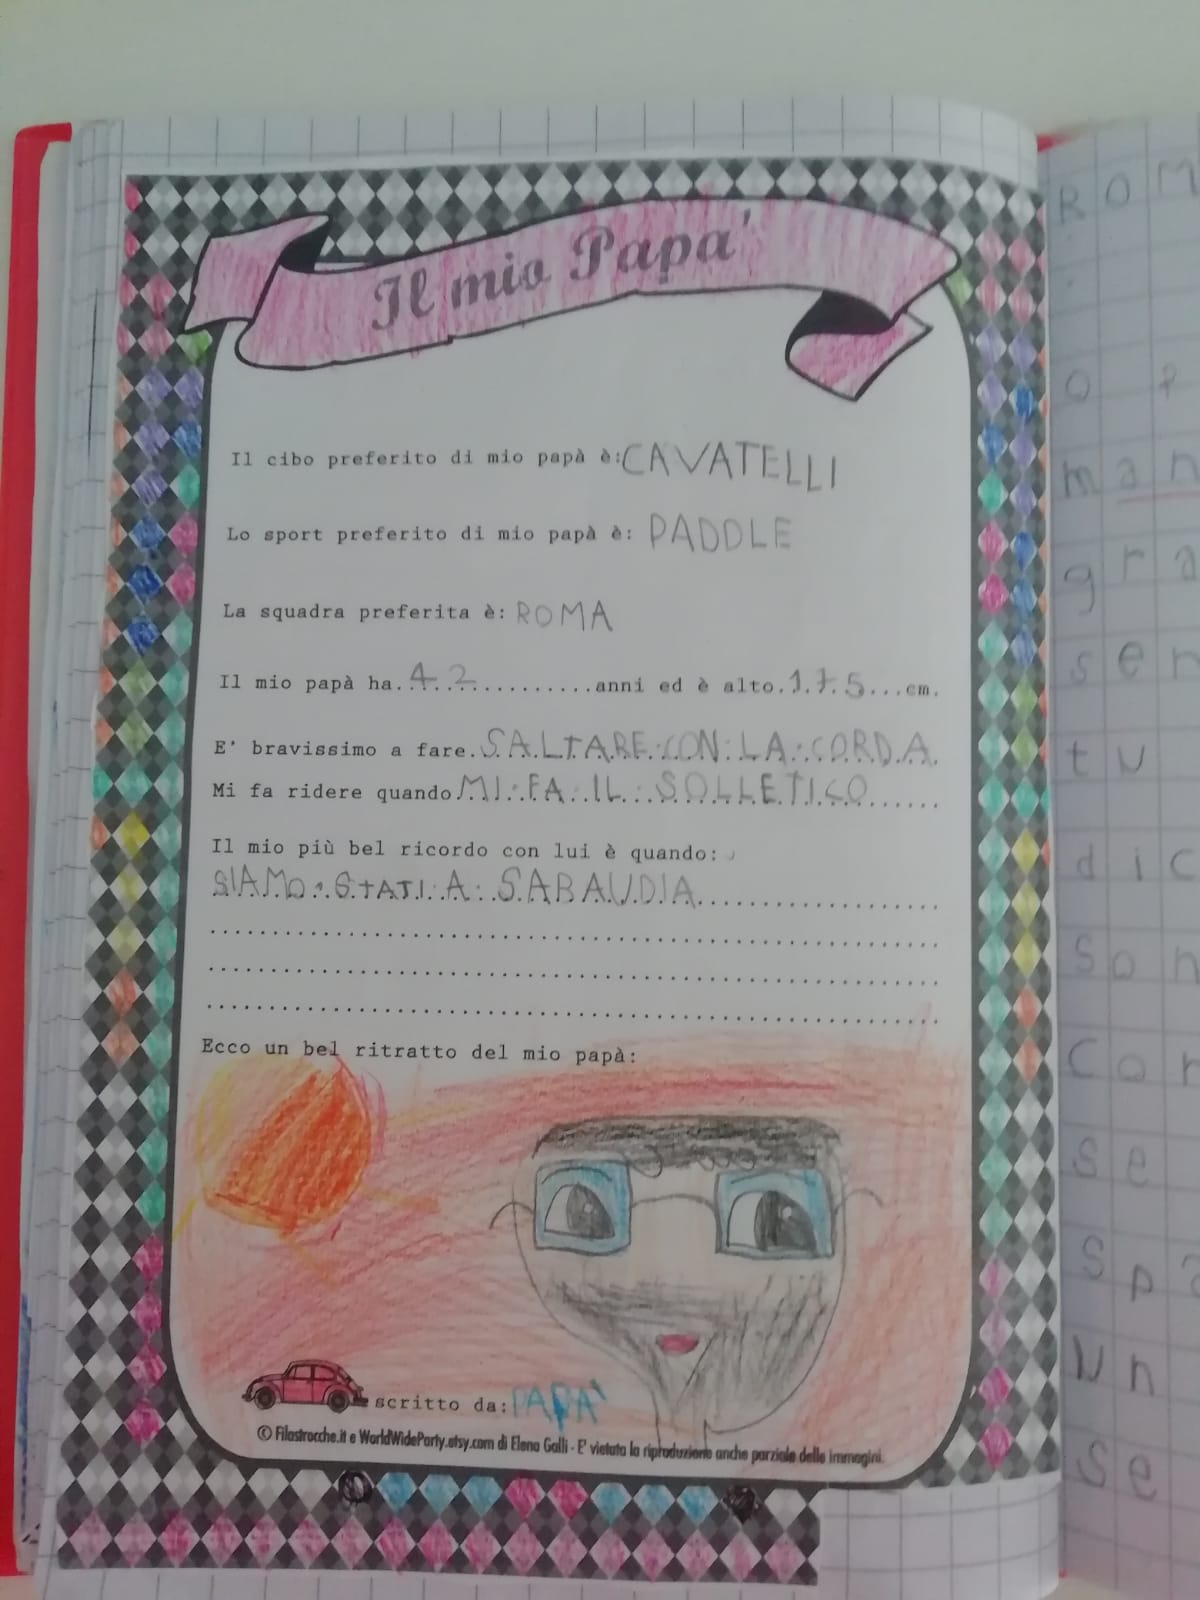 Il mio Papa'
Il cibo preferito di mio papà è: CAVATELLI
Lo sport preferito di mio papà è: PADDLE
La squadra preferita è: ROMA
Il mio papà ha..42............anni ed è alto.175...cm.
E' bravissimo a fare.SALTARE.CON.LA.CORDA.
Mi fa ridere quando.MI.FA.IL.SOLLETICO......
Il mio più bel ricordo con lui è quando:
SIAMO.STATI.A.SABAUDIA....................
Ecco un bel ritratto del mio papà:
scritto da: PAPA'
© Filastrocche.it e WorldWideParty.etsy.com di Elena Galli - E' vietata la riproduzione anche parziale delle immagini.
ROM
O P
man
gra
sen
tu
dic
son
Con
se
spa
un
se